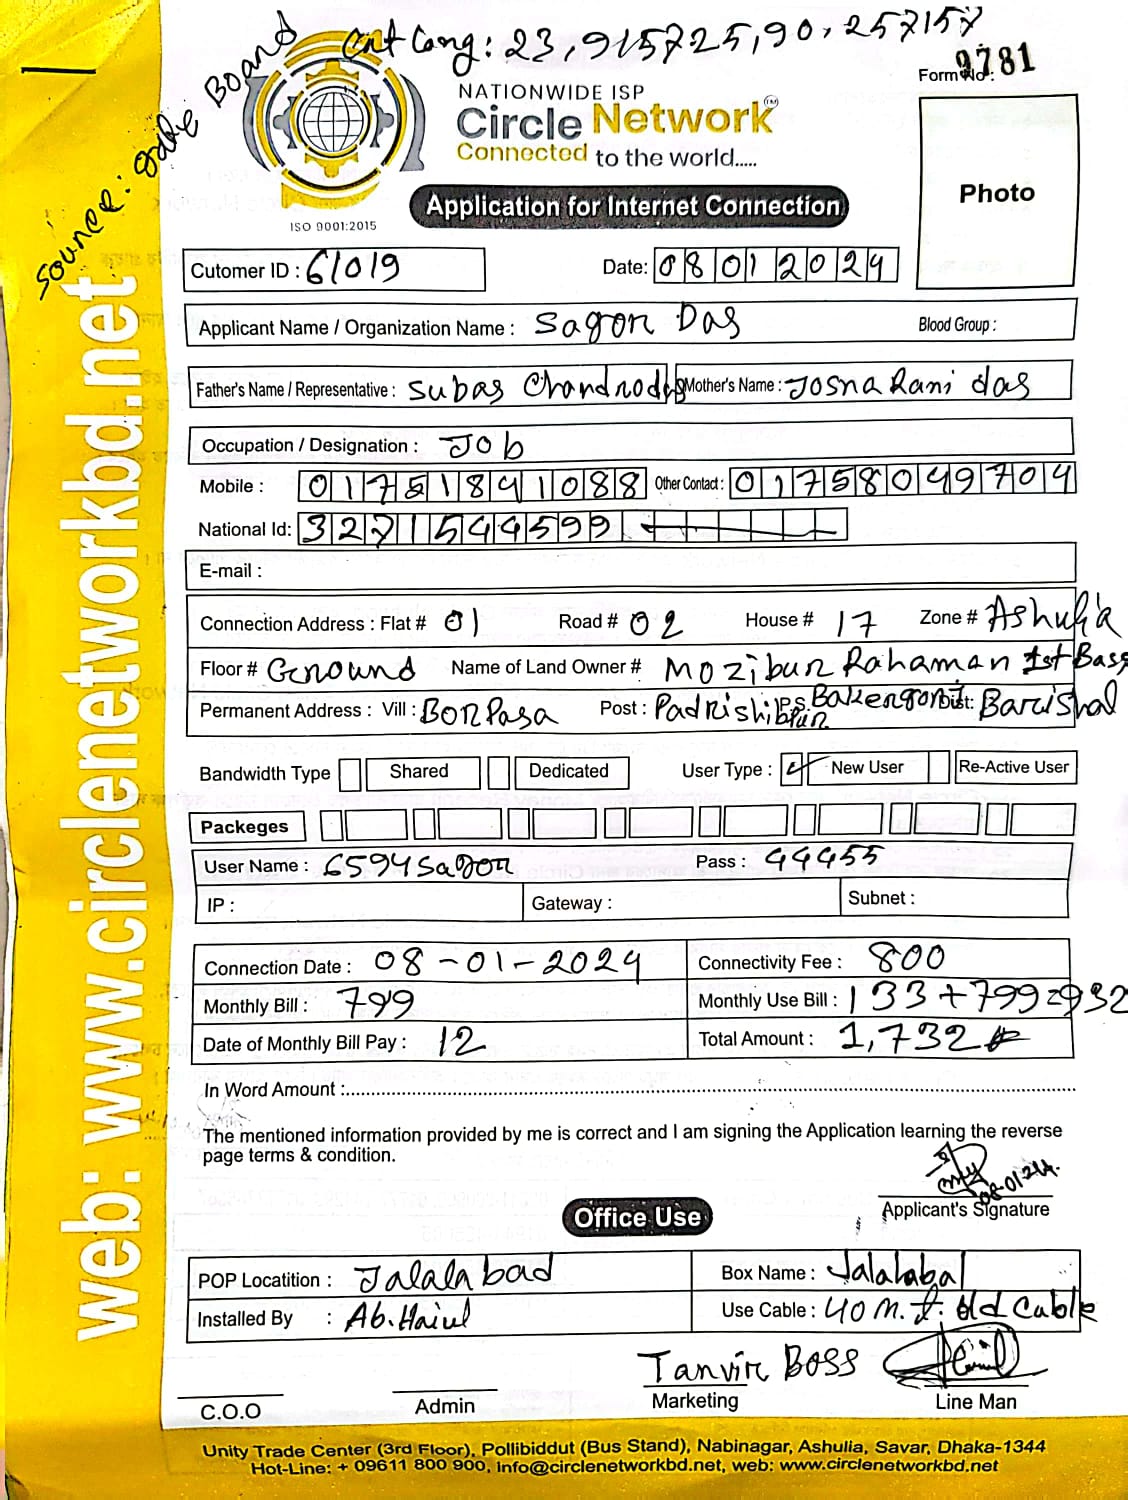 Cnt Cang: 23,915725,90,257157
Source: Sale Board
Form No: 9781
NATIONWIDE ISP
Circle Network TM
Connected to the world.....
ISO 9001:2015
Application for Internet Connection
Photo
Cutomer ID : 61019
Date: 08012024
Applicant Name / Organization Name : Sagor Das
Blood Group :
Father's Name / Representative : Subas Chandrodas Mother's Name : Josna Rani das
Occupation / Designation : Job
Mobile : 01751841088 Other Contact : 01758049704
National Id: 3271544599
E-mail :
Connection Address : Flat # 01 Road # 02 House # 17 Zone # Ashulia
Floor # Ground Name of Land Owner # Mozibur Rahaman 1st Bass
Permanent Address : Vill : BorPasa Post : Padrishibpur P.S. Bakergonj Dist: Barishal
Bandwidth Type Shared Dedicated User Type : New User Re-Active User
Packeges
User Name : 6594sagor Pass : 44455
IP : Gateway : Subnet :
Connection Date : 08-01-2024 Connectivity Fee : 800
Monthly Bill : 799 Monthly Use Bill : 133+799=932
Date of Monthly Bill Pay : 12 Total Amount : 1,732
In Word Amount :
The mentioned information provided by me is correct and I am signing the Application learning the reverse
page terms & condition.
08-01-24
Applicant's Signature
Office Use
POP Locatition : Jalalabad Box Name : Jalalabal
Installed By : Ab.Hairul Use Cable : 40 m.t. old Cable
Tanvir BOSS
C.O.O Admin Marketing Line Man
Unity Trade Center (3rd Floor), Pollibiddut (Bus Stand), Nabinagar, Ashulia, Savar, Dhaka-1344
Hot-Line: + 09611 800 900, info@circlenetworkbd.net, web: www.circlenetworkbd.net
web: www.circlenetworkbd.net